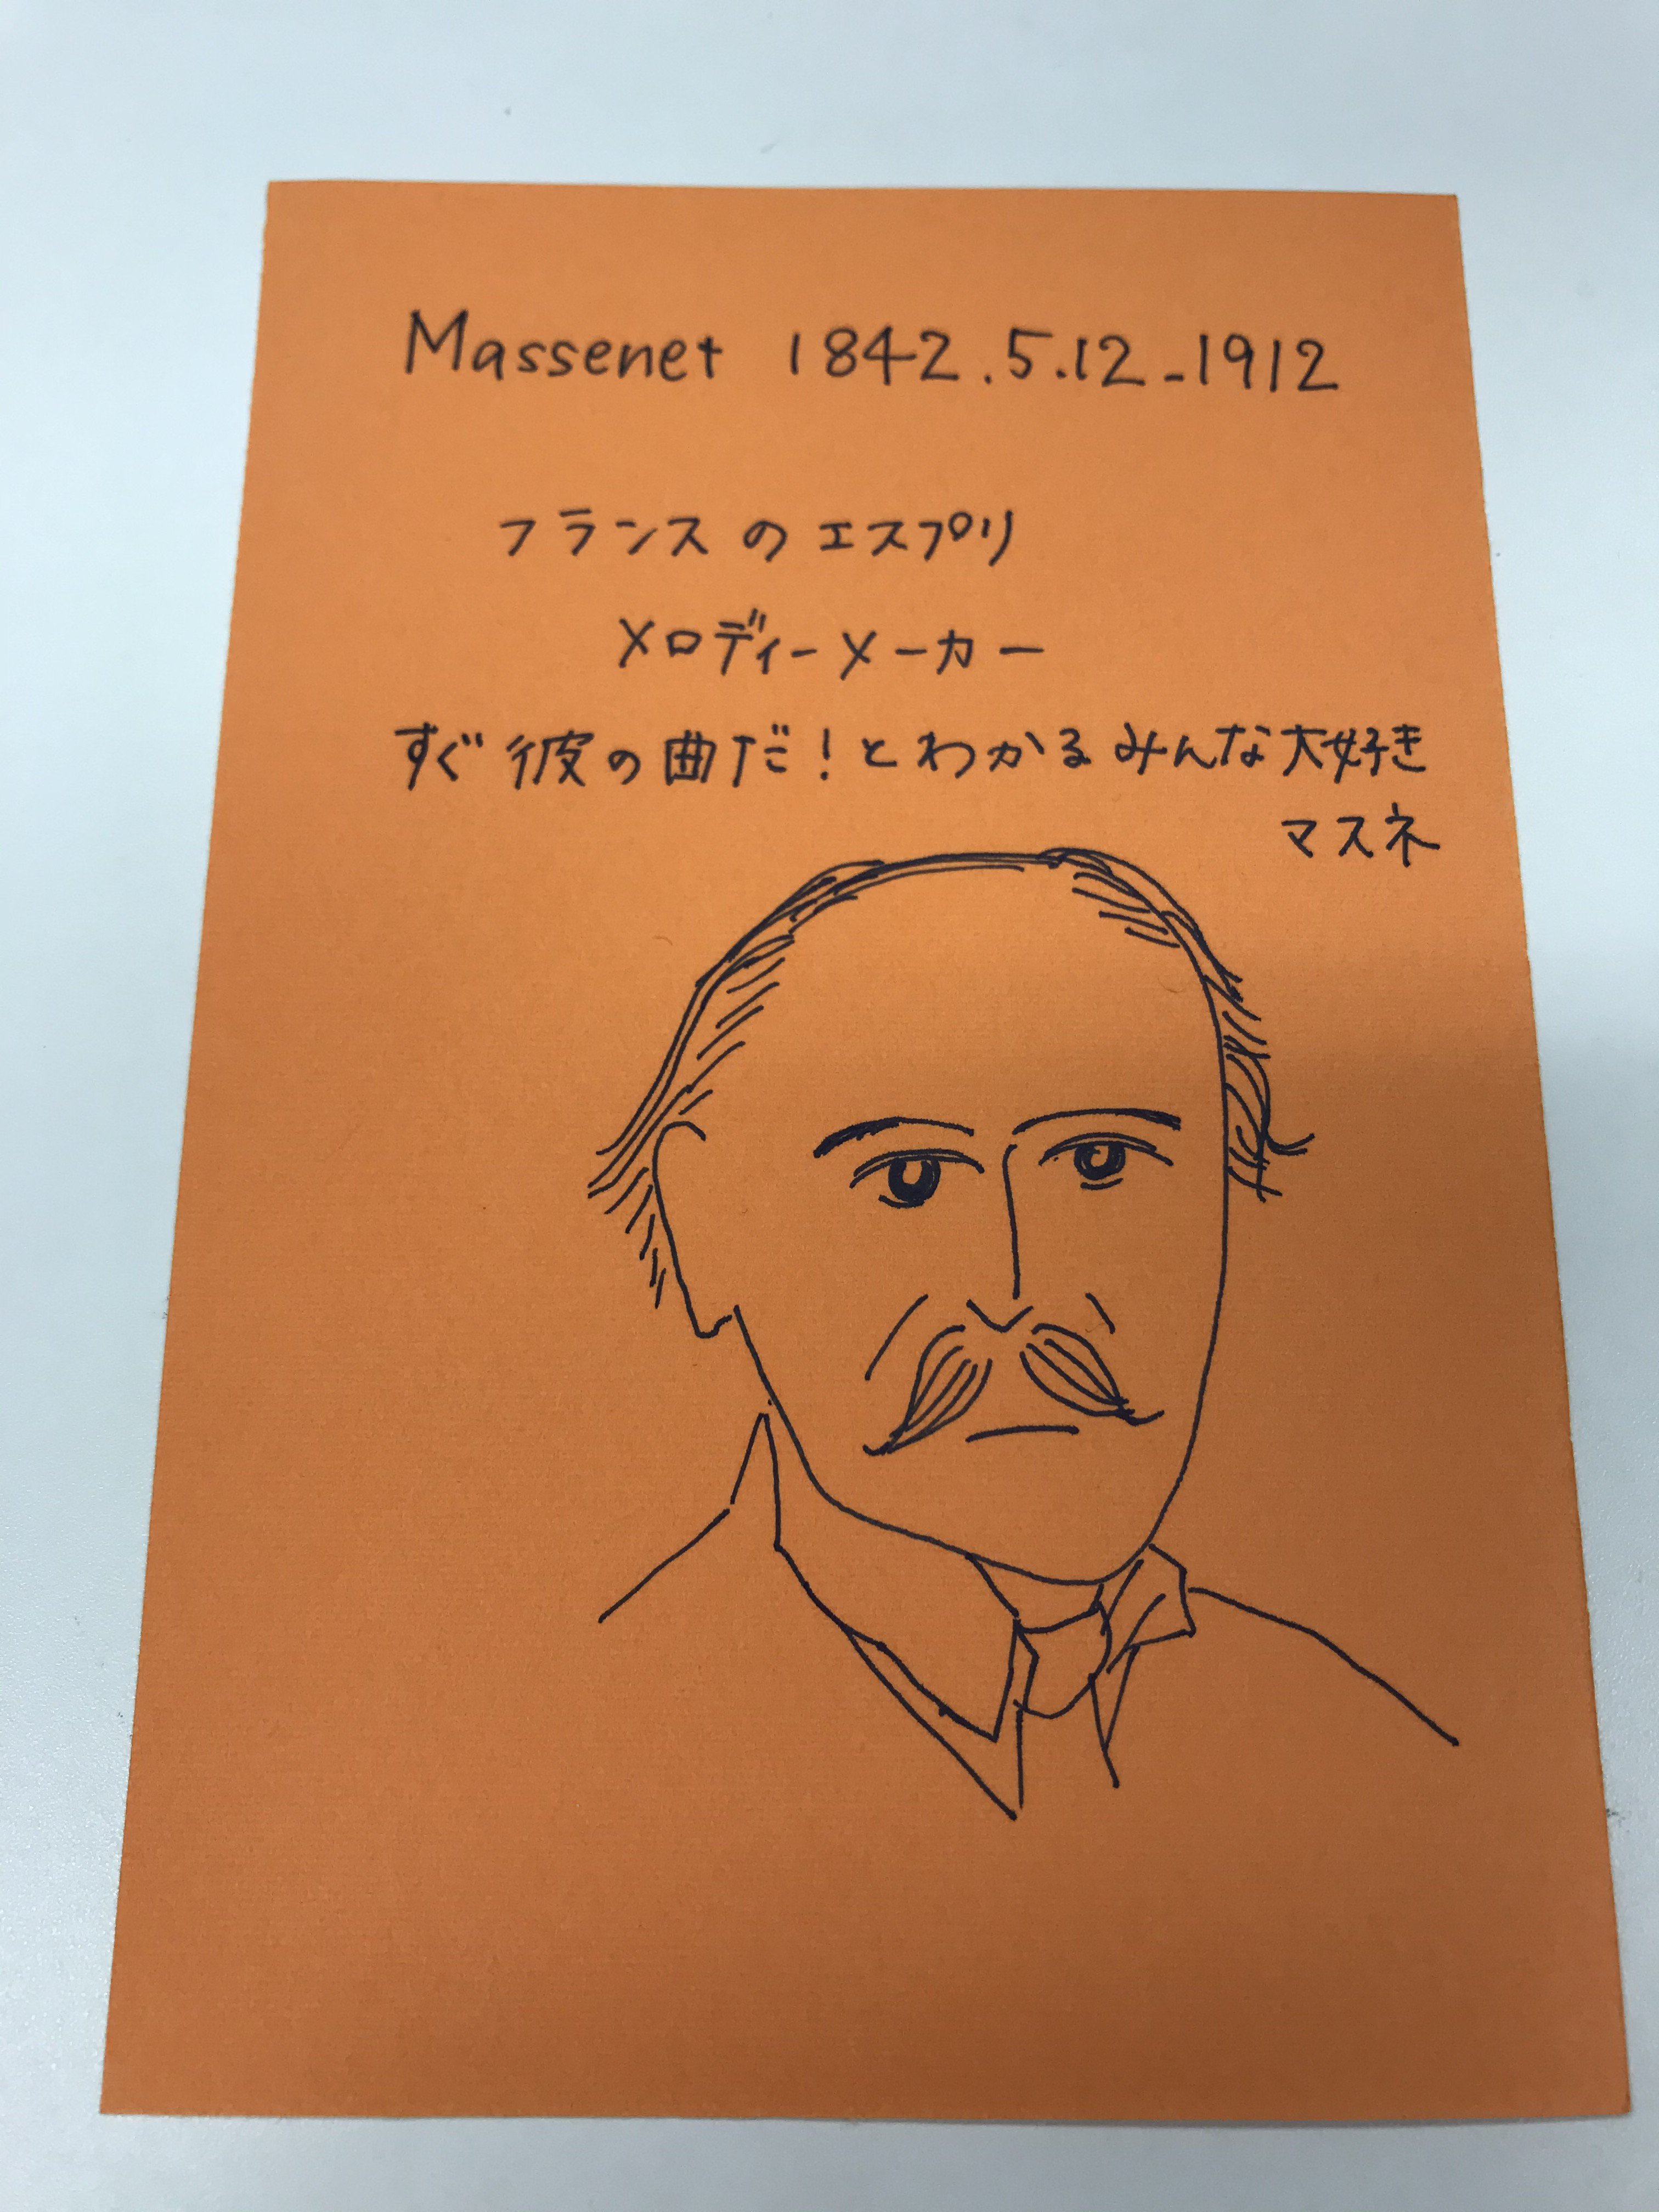 Massenet 1842.5.12-1912
フランスのエスプリ
メロディーメーカー
すぐ彼の曲だ！とわかるみんな大好き
マスネ